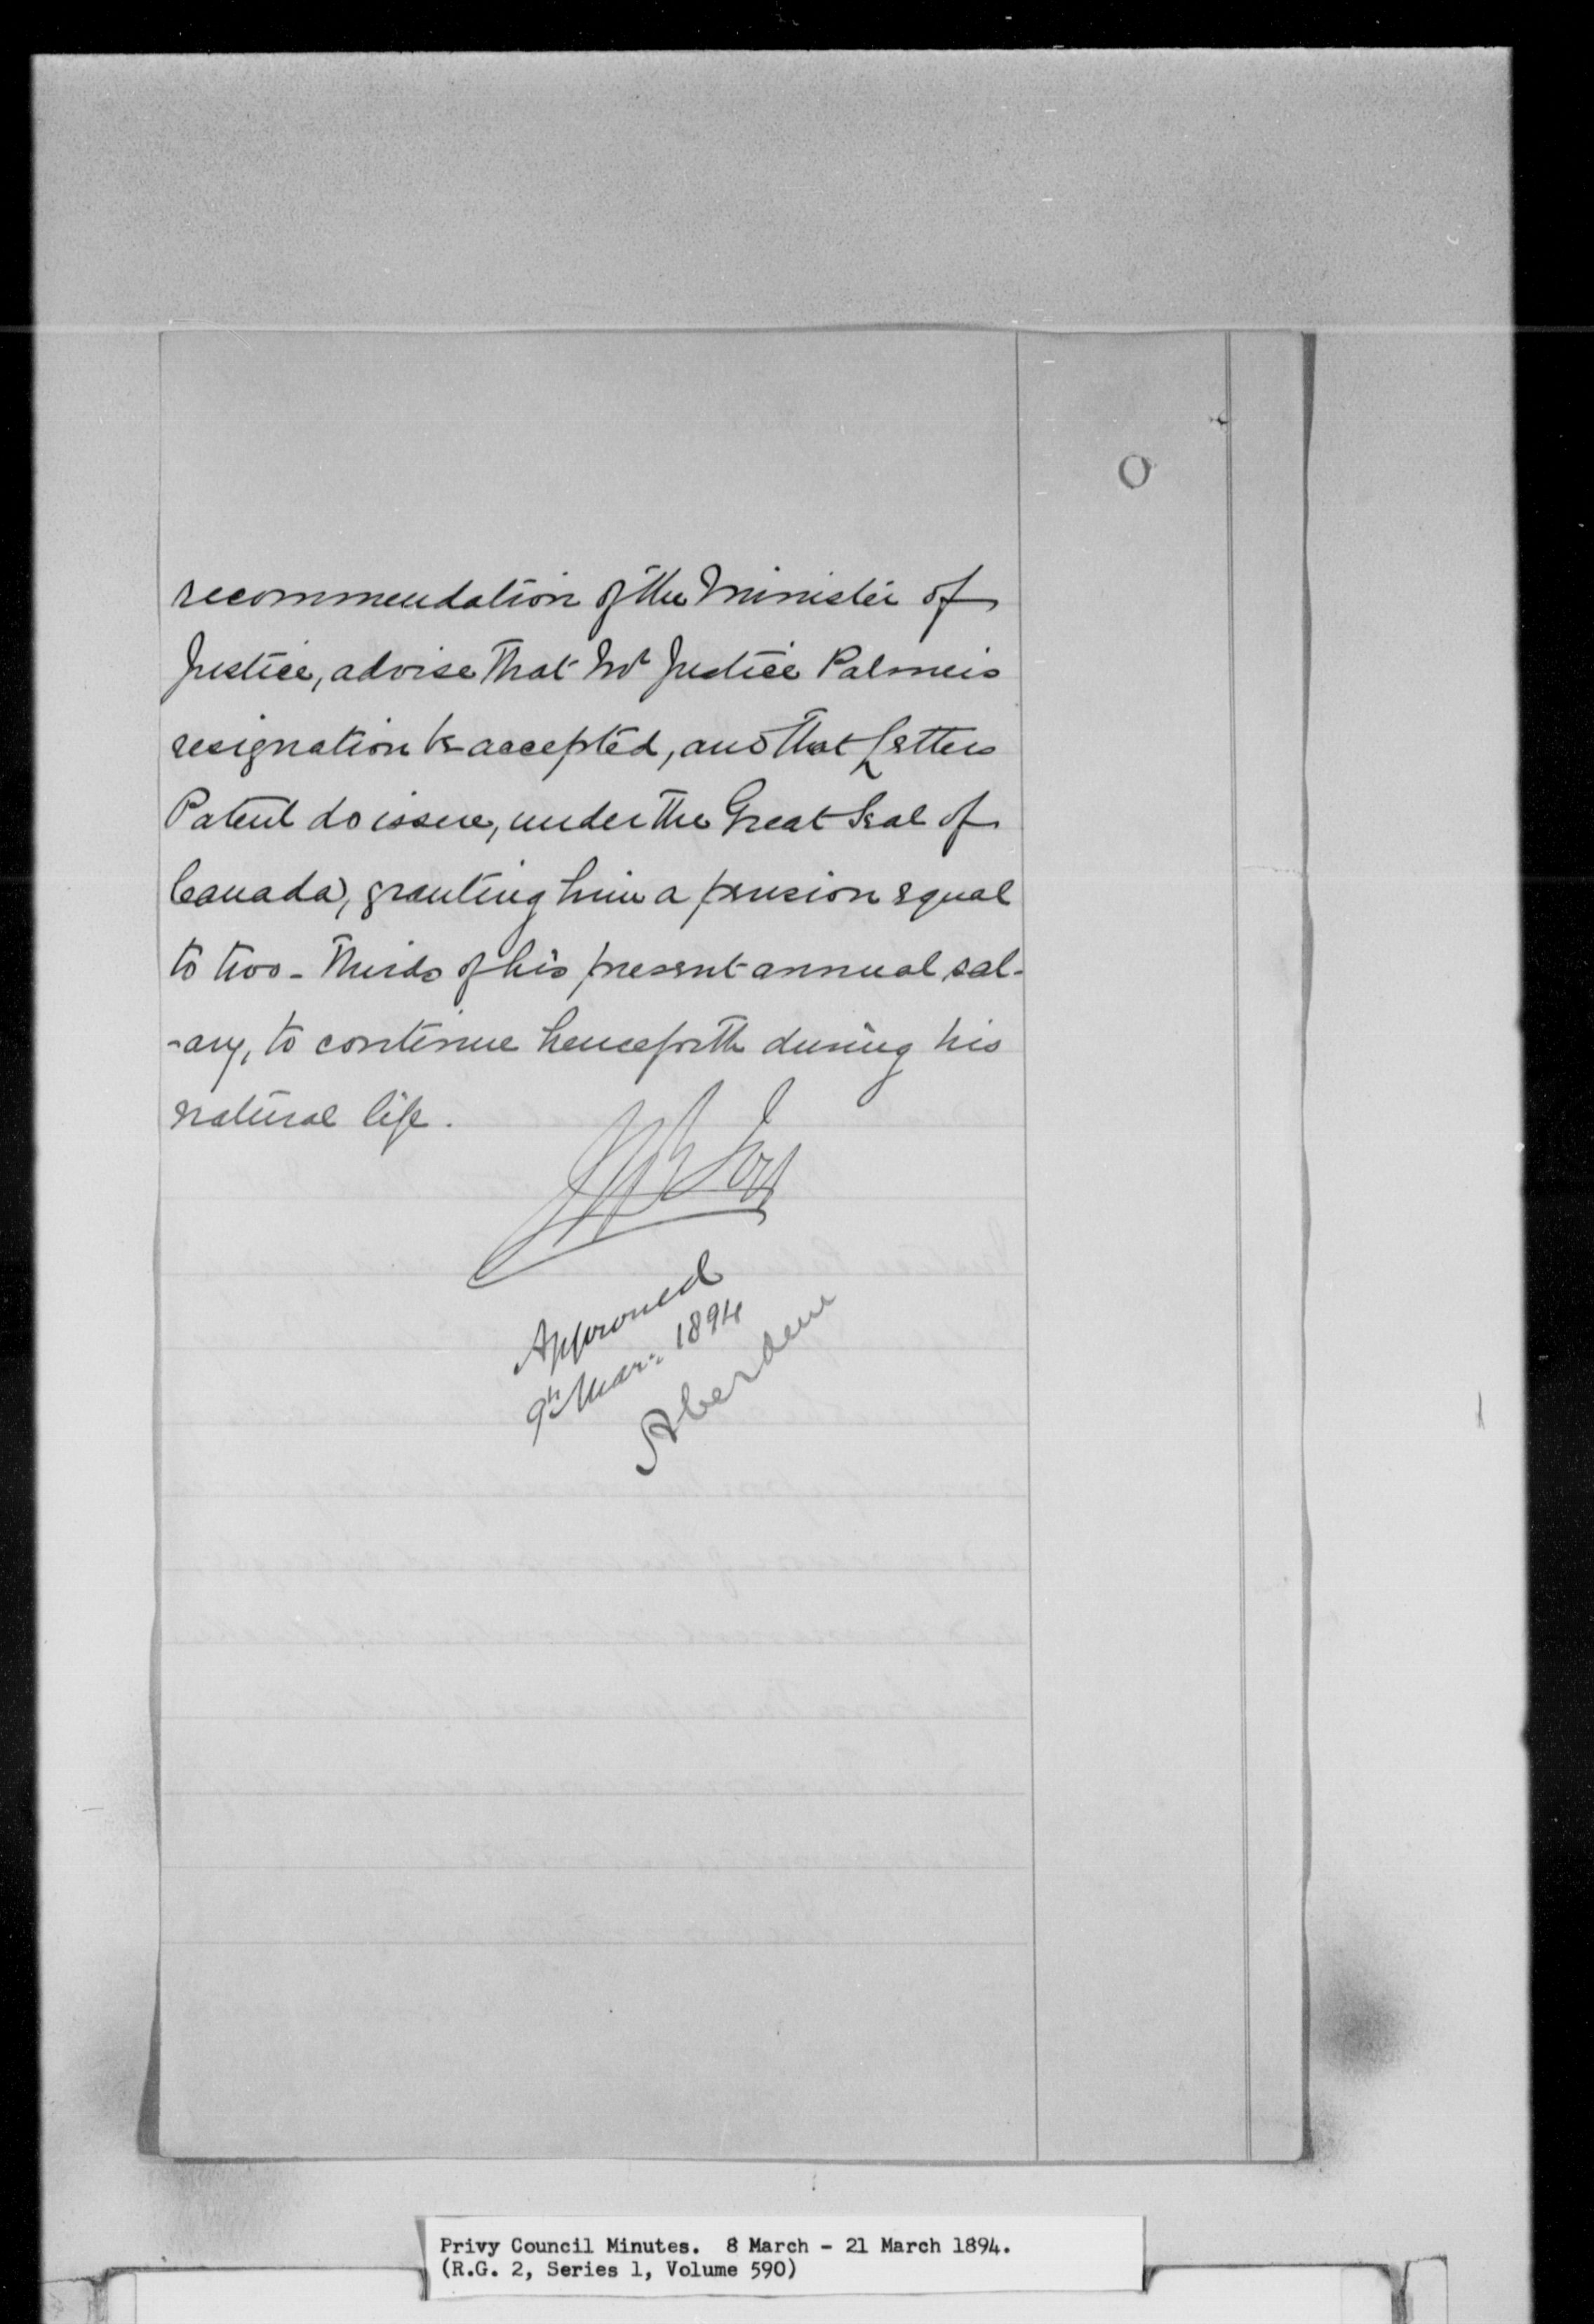 recommendation of the Minister of
Justice, advise that Mr Justice Palmer's
resignation be accepted, and that Letters
Patent do issue, under the Great Seal of
Canada, granting him a pension equal
to two-thirds of his present annual sal-
-ary, to continue henceforth during his
natural life.
Approved
9th Mar: 1894
Aberdeen
Privy Council Minutes. 8 March - 21 March 1894.
(R.G. 2, Series 1, Volume 590)